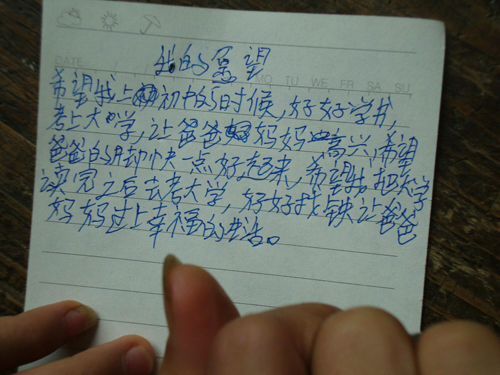 我的愿望
DATE MO TU WE FR SA SU
希望我上初中的时候,好好学书,
考上大学,让爸爸妈妈高兴,希望
爸爸的病快一点好起来,希望我把大学
读完之后去考大学,好好找钱让爸爸
妈妈过上幸福的生活。